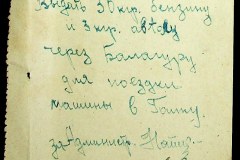 Выдать 50 кгр. бензину
и 3 кгр. автолу
через Балагуру
для поездки
машины в Галку.
за Администр.